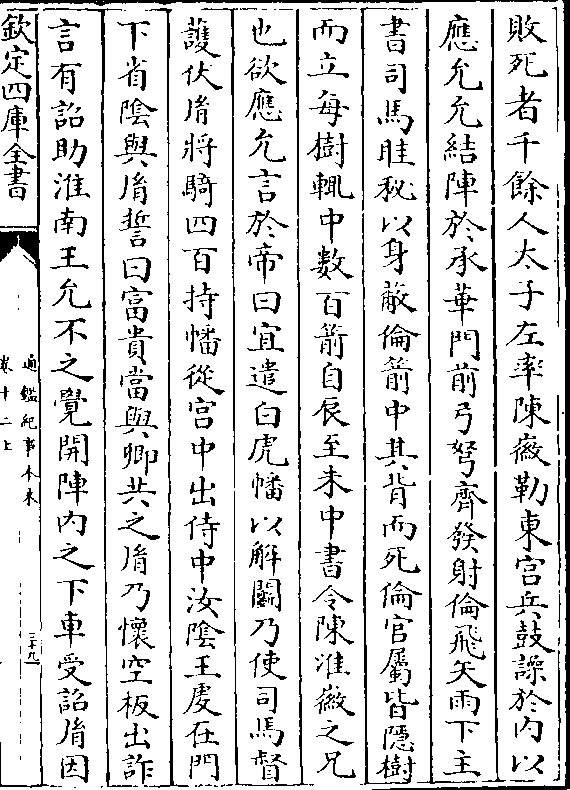 敗死者千餘人太子左率陳徽勒東宫兵鼓譟於内以
應允允結陣於承華門前弓弩齊發射倫飛矢雨下主
書司馬眭秘以身蔽倫箭中其背而死倫官屬皆隱樹
而立每樹輒中数百箭自辰至未中書令陳淮徽之兄
也欲應允言於帝曰宜遣白虎幡以解鬭乃使司馬督
護伏胤將騎四百持幡從宫中出侍中汝陰王䖍在門
下省隂與胤誓曰富貴當與卿共之胤乃懷空板出詐
言有詔助淮南王允不之覺開陣内之下車受詔胤因
欽定四庫全書
通鑑紀事本末
卷十二上
三十九